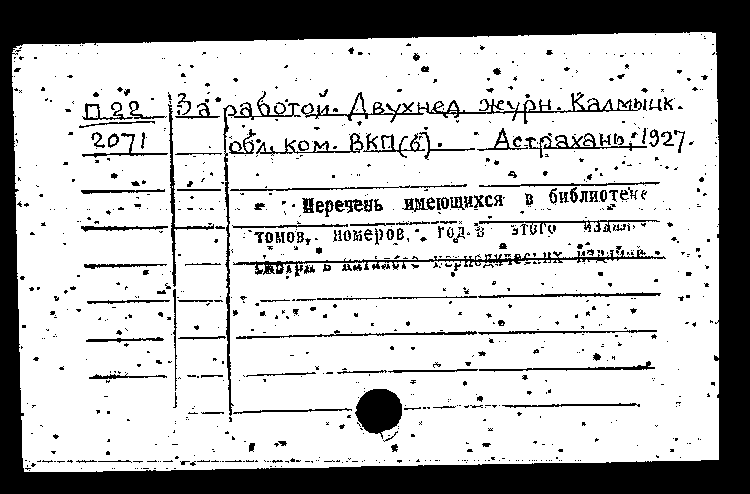 П 22 За работой. Двухнед. журн. Калмыцк.
2071 обл. ком. ВКП(б). Астрахань, 1927.
Перечень имеющихся в библиотеке
томов, номеров, год в этого издан
смотри в каталоге периодических изданий